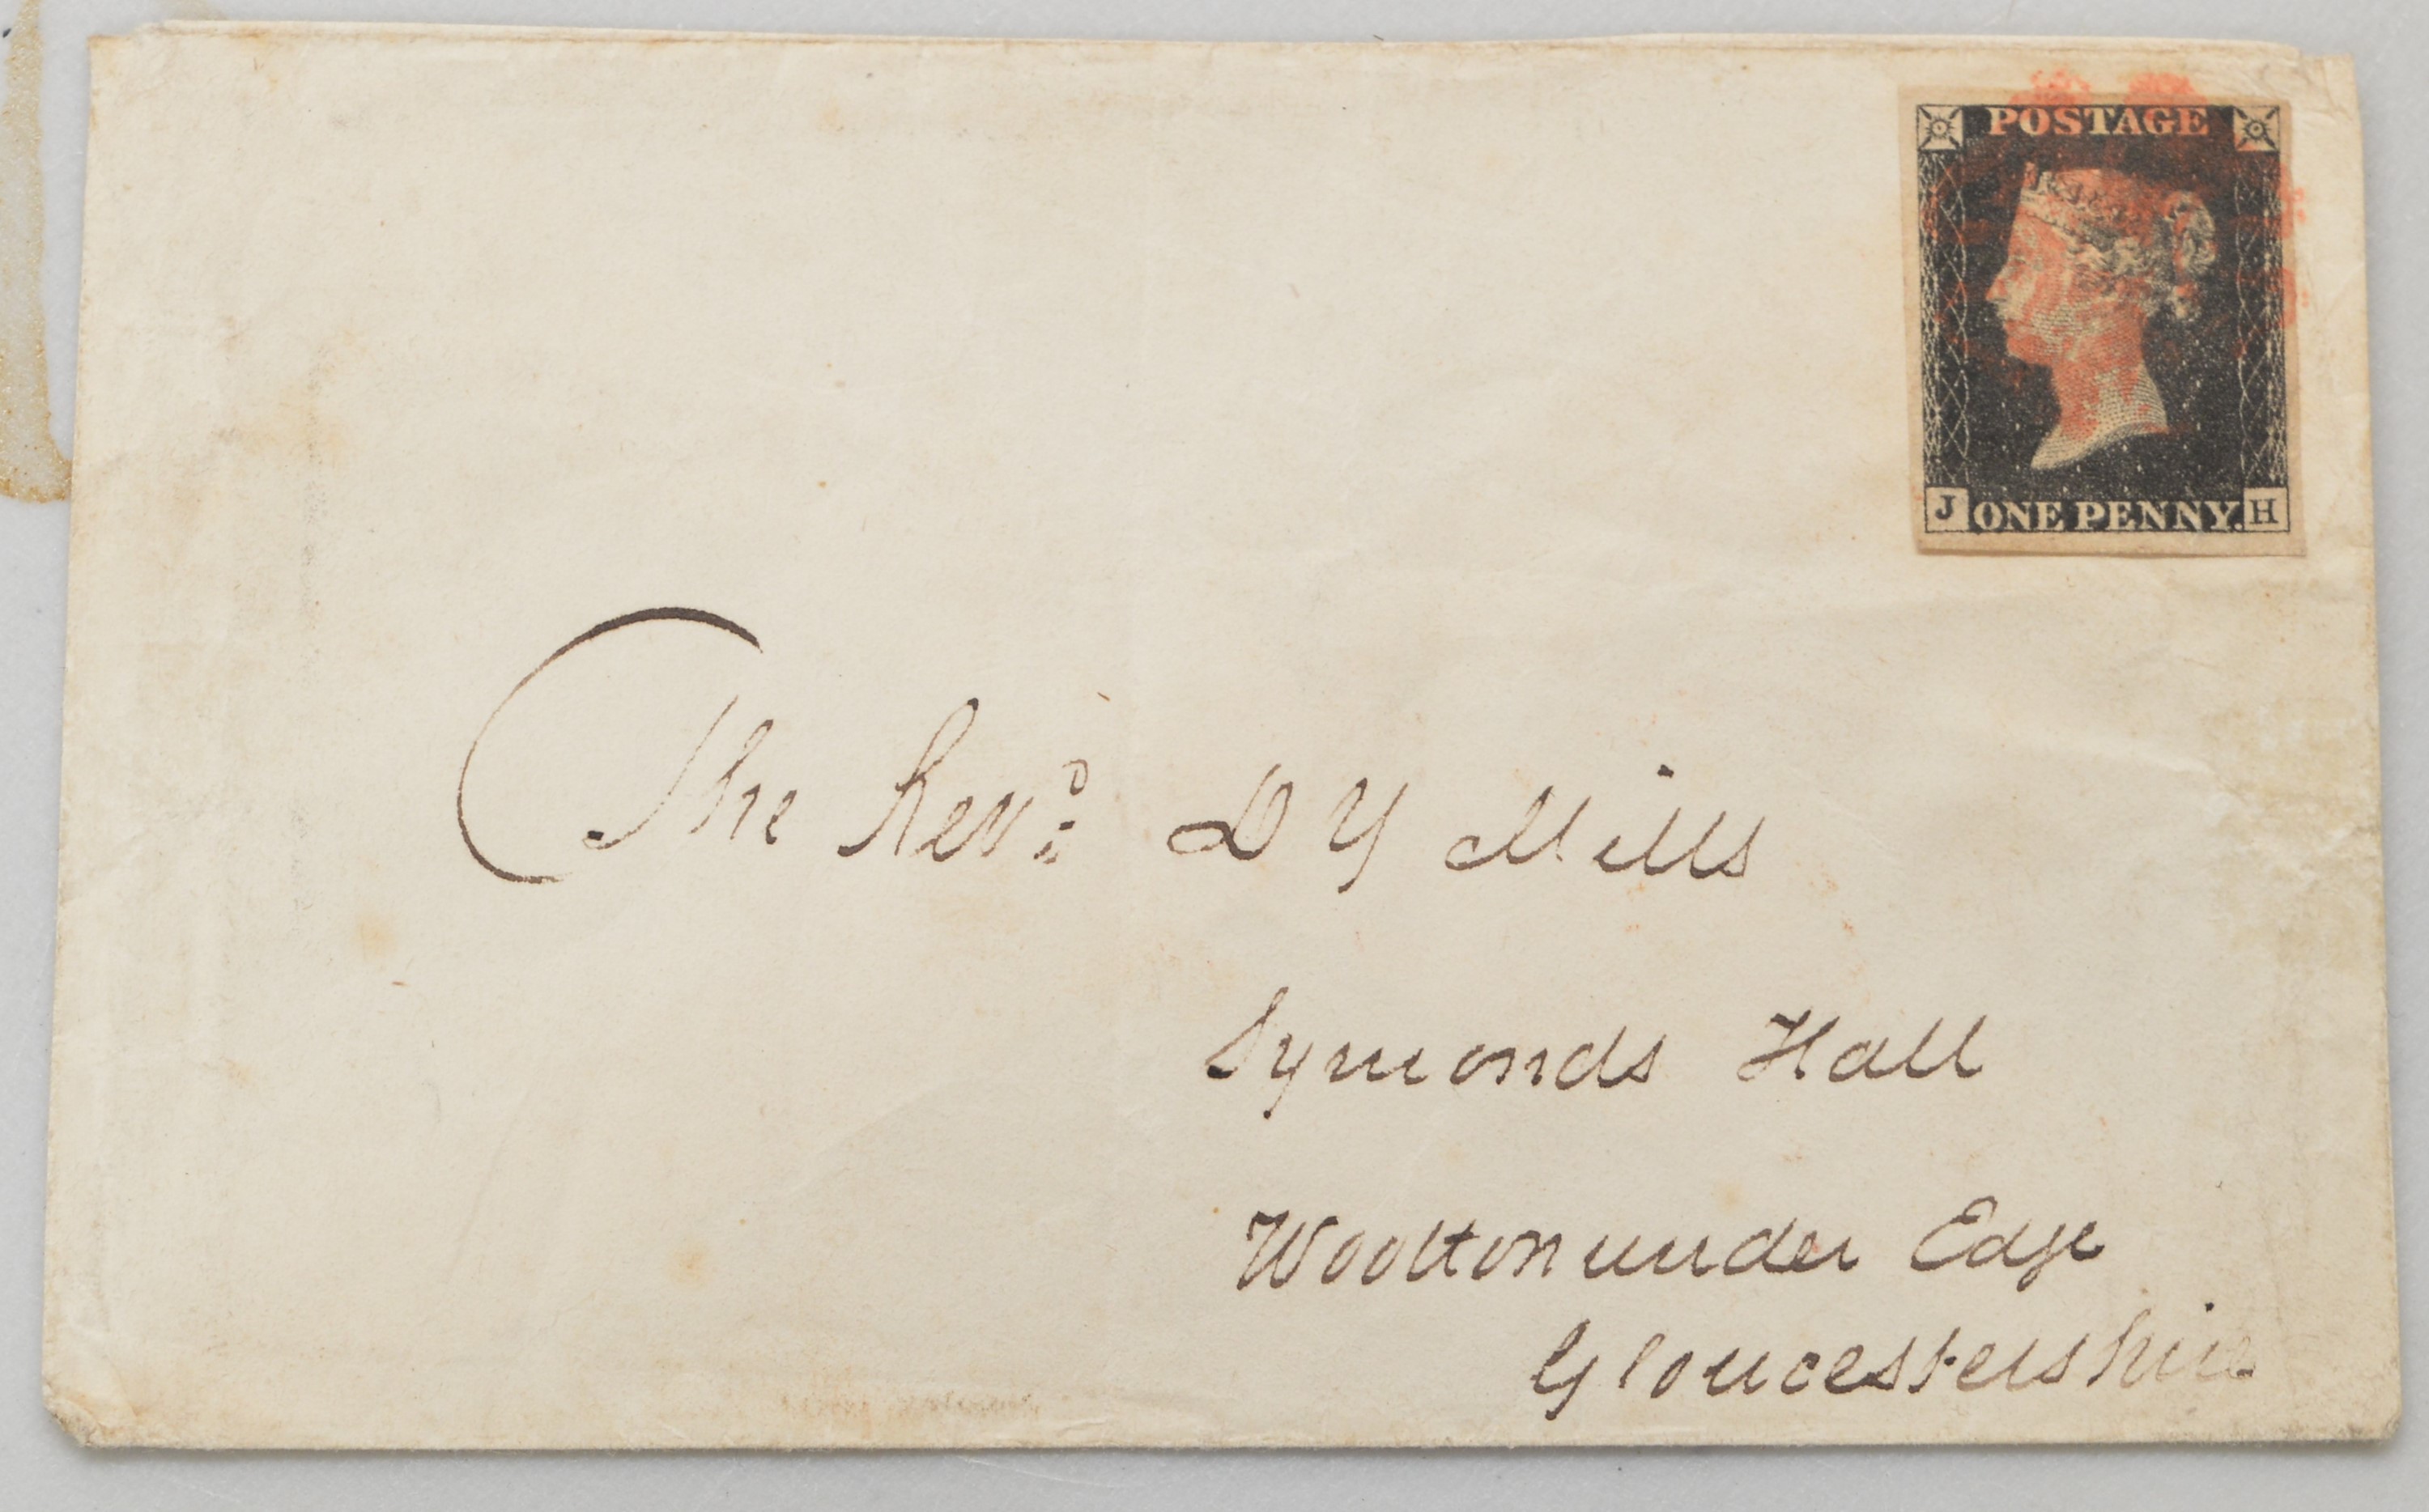 POSTAGE
J ONE PENNY. H
The Revd. D Y Mills
Symonds Hall
Wootton under Edge
Gloucestershire